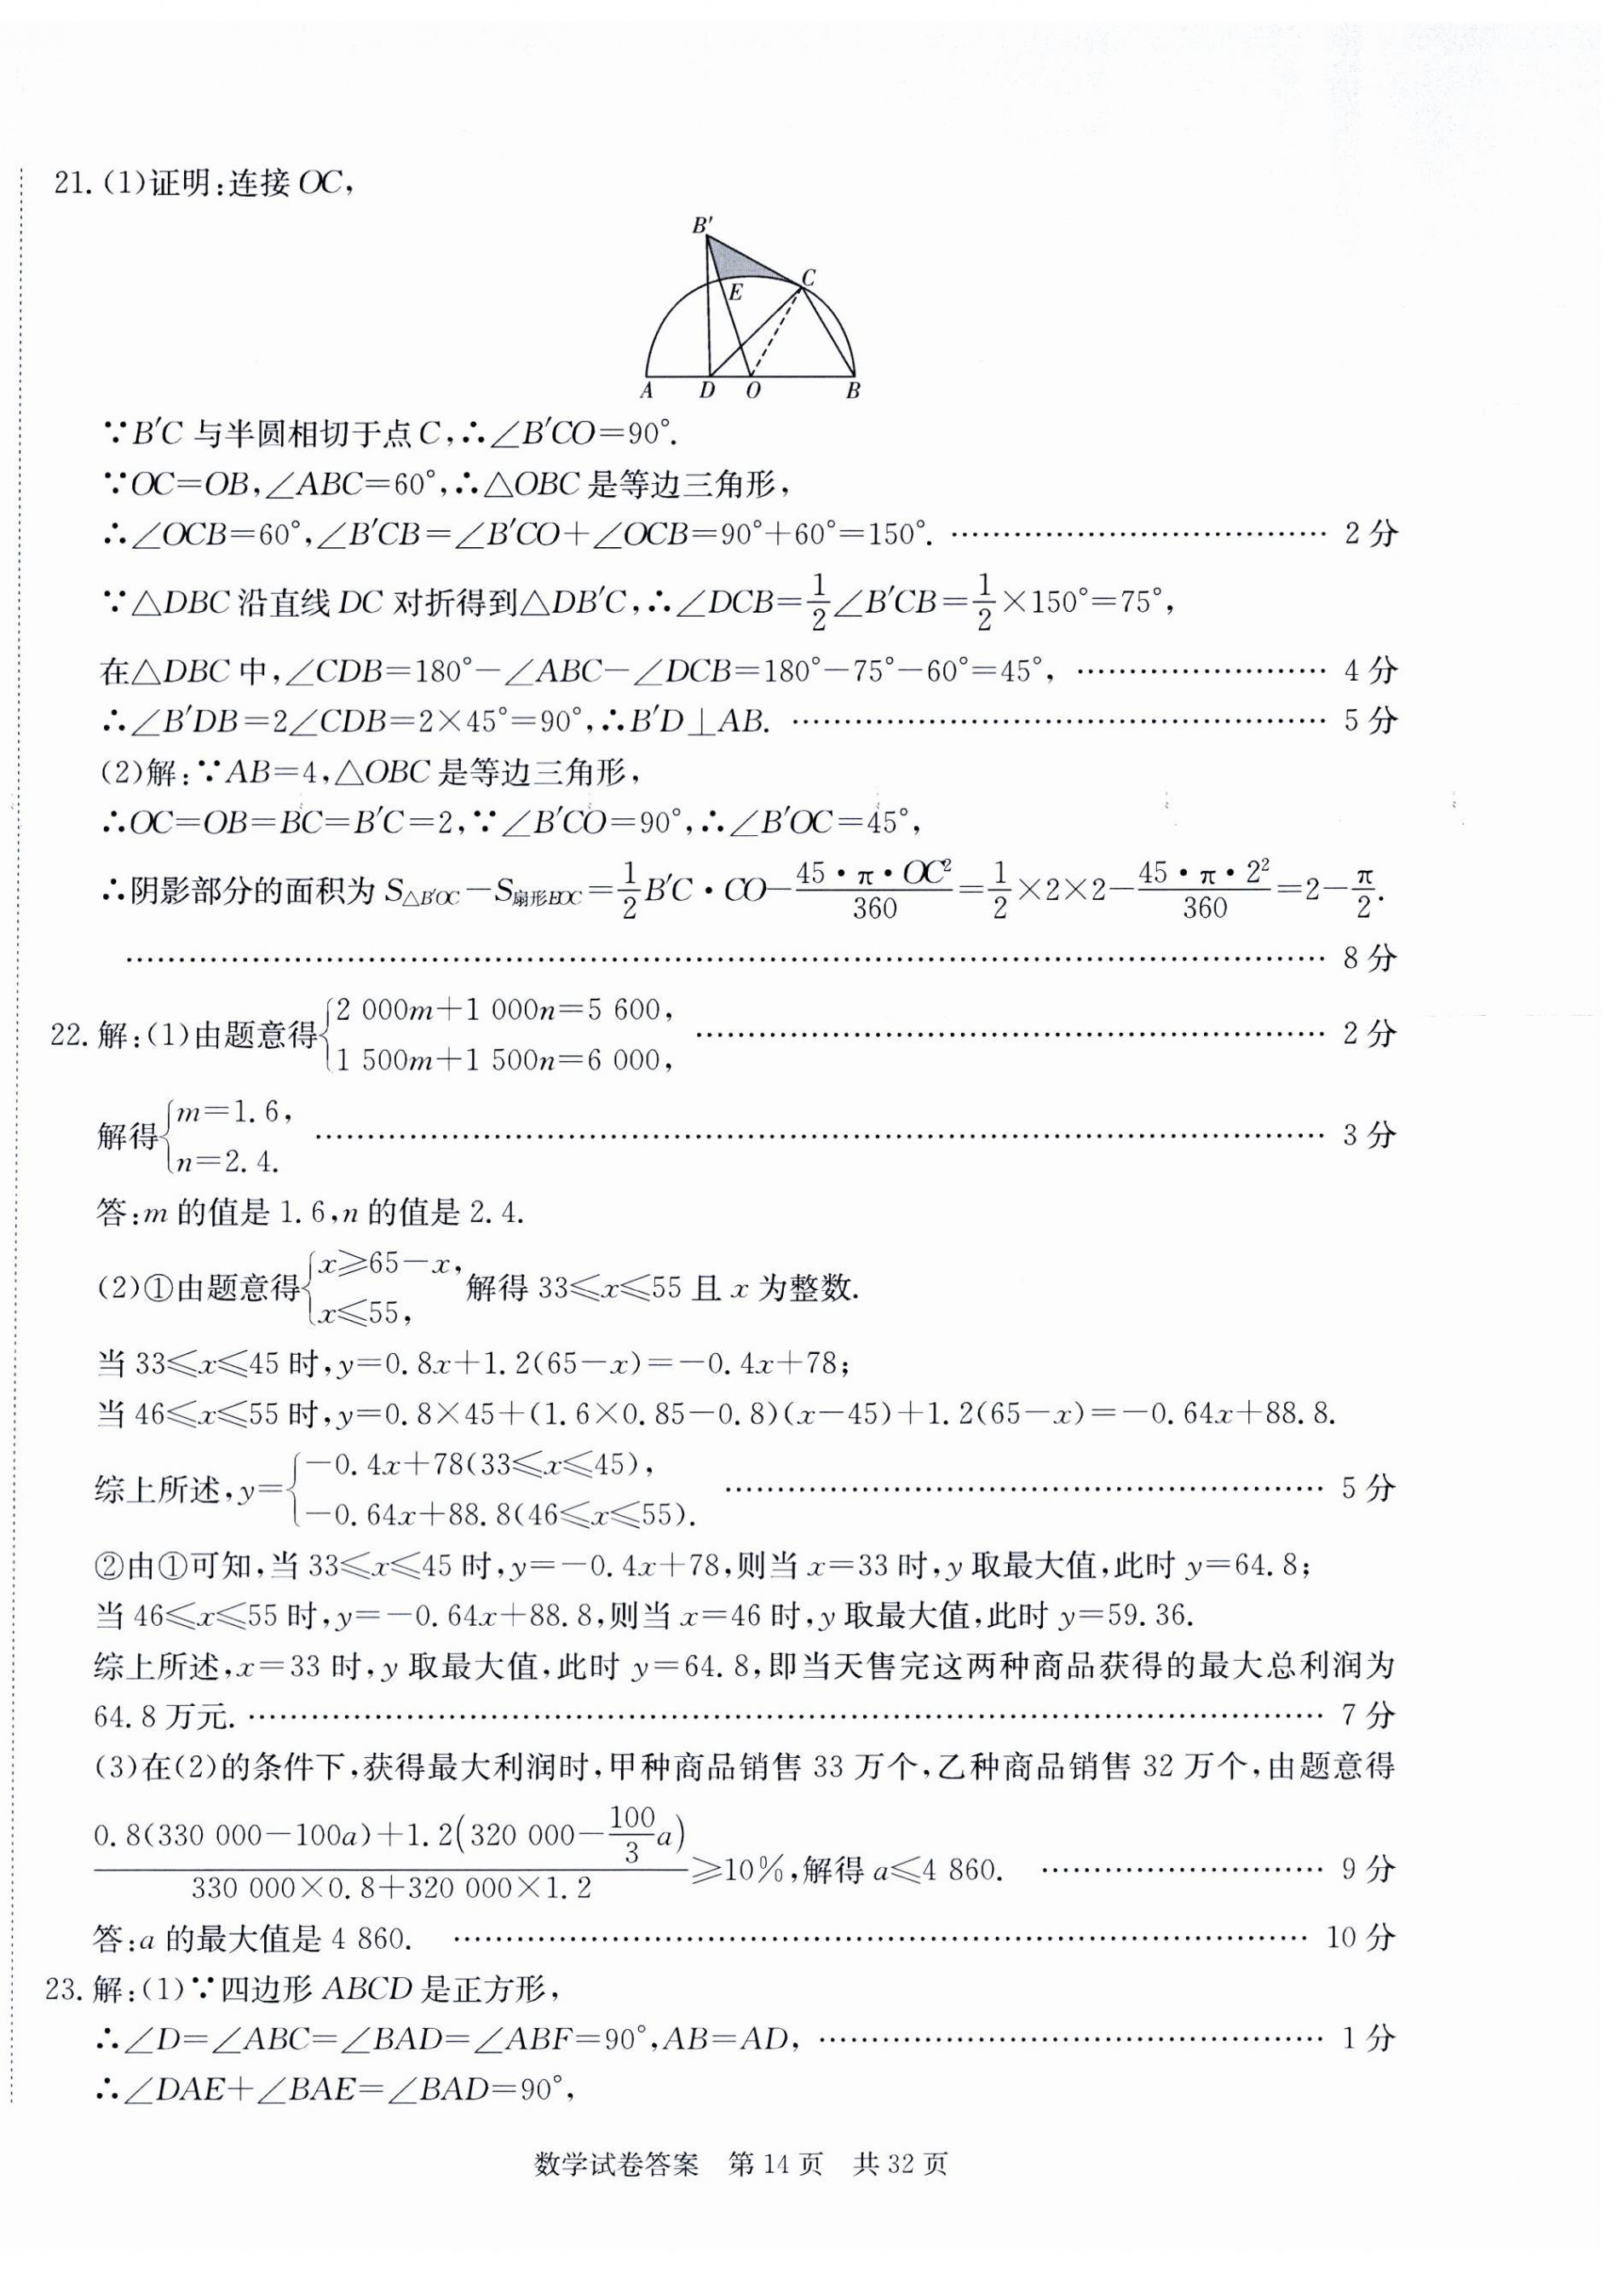 21.(1)证明:连接OC,
B′
C
E
A D O B
∵B′C 与半圆相切于点C,∴∠B′CO=90°.
∵OC=OB,∠ABC=60°,∴△OBC是等边三角形,
∴∠OCB=60°,∠B′CB=∠B′CO+∠OCB=90°+60°=150°. …… 2分
∵△DBC沿直线DC 对折得到△DB′C,∴∠DCB=1/2∠B′CB=1/2×150°=75°,
在△DBC中,∠CDB=180°−∠ABC−∠DCB=180°−75°−60°=45°, …… 4分
∴∠B′DB=2∠CDB=2×45°=90°,∴B′D⊥AB. …… 5分
(2)解:∵AB=4,△OBC是等边三角形,
∴OC=OB=BC=B′C=2,∵∠B′CO=90°,∴∠B′OC=45°,
∴阴影部分的面积为 S△B′OC−S扇形EOC=1/2B′C·CO−(45·π·OC²)/360=1/2×2×2−(45·π·2²)/360=2−π/2.
…… 8分
22.解:(1)由题意得{2 000m+1 000n=5 600, …… 2分
1 500m+1 500n=6 000,
解得{m=1.6, …… 3分
n=2.4.
答:m的值是1.6,n的值是2.4.
(2)①由题意得{x≥65−x, 解得33≤x≤55且x为整数.
x≤55,
当33≤x≤45时,y=0.8x+1.2(65−x)=−0.4x+78;
当46≤x≤55时,y=0.8×45+(1.6×0.85−0.8)(x−45)+1.2(65−x)=−0.64x+88.8.
综上所述,y={−0.4x+78(33≤x≤45), …… 5分
−0.64x+88.8(46≤x≤55).
②由①可知,当33≤x≤45时,y=−0.4x+78,则当x=33时,y取最大值,此时y=64.8;
当46≤x≤55时,y=−0.64x+88.8,则当x=46时,y取最大值,此时y=59.36.
综上所述,x=33时,y取最大值,此时y=64.8,即当天售完这两种商品获得的最大总利润为
64.8万元. …… 7分
(3)在(2)的条件下,获得最大利润时,甲种商品销售33万个,乙种商品销售32万个,由题意得
(0.8(330 000−100a)+1.2(320 000−100/3a))/(330 000×0.8+320 000×1.2)≥10%,解得a≤4 860. …… 9分
答:a的最大值是4 860. …… 10分
23.解:(1)∵四边形ABCD是正方形,
∴∠D=∠ABC=∠BAD=∠ABF=90°,AB=AD, …… 1分
∴∠DAE+∠BAE=∠BAD=90°,
数学试卷答案 第14页 共32页